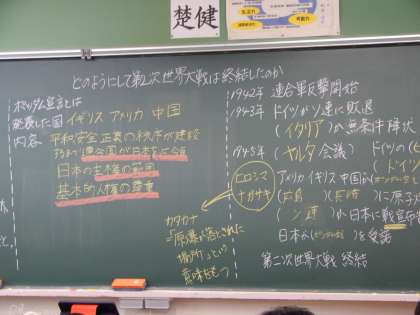 楚健
どのようにして第2次世界大戦は終結したのか
ポツダム宣言とは
発表した国 イギリス アメリカ 中国
内容 平和安全正義の秩序が建設
連合国が日本を占領
日本の主権の範囲
基本的人権の尊重
1942年 連合軍反撃開始
1943年 ドイツがソ連に敗退
(イタリア)の無条件降伏
1945年 (ヤルタ)会議) ドイツの(
アメリカ イギリス 中国が(
ヒロシマ
ナガサキ
(広島)(長崎)に原子
(ソ連)が日本に戦
日本が( )を受諾
第二次世界大戦 終結
カタカナ
「原爆が落とされた
場所」という
意味をもつ